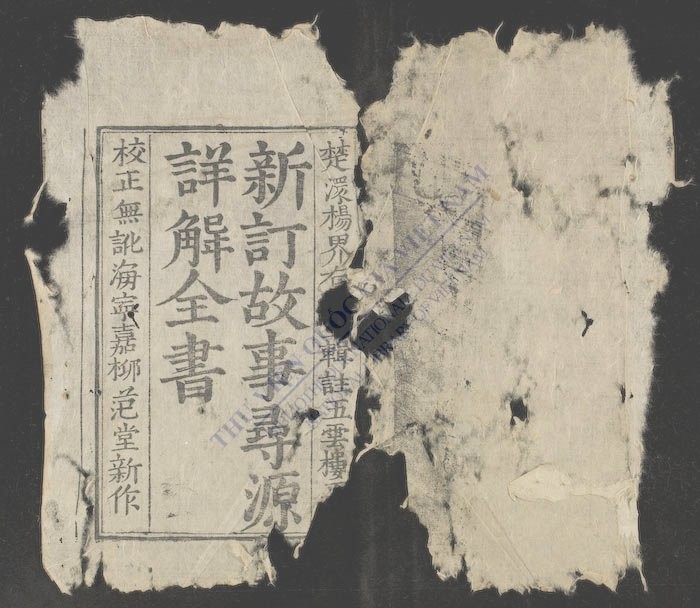 楚澴楊界右輯註五雲樓
新訂故事尋源
詳解全書
校正無訛海寧嘉柳范堂新作
THƯ VIỆN QUỐC GIA VIỆT NAM
BIBLIOTHEQUE NATIONALE DU VIETNAM
NATIONAL LIBRARY OF VIETNAM